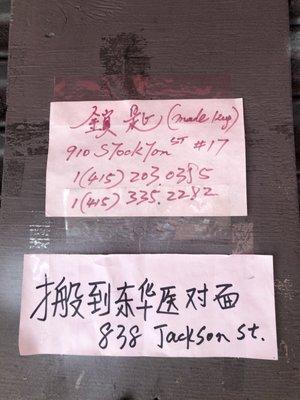 鎖匙 (made key)
910 STockTon ST #17
1(415) 203 0385
1(415) 335.2282
搬到东华医对面
838 Jackson St.